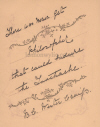 There was never yet
philosopher
that could endure
the Toothache